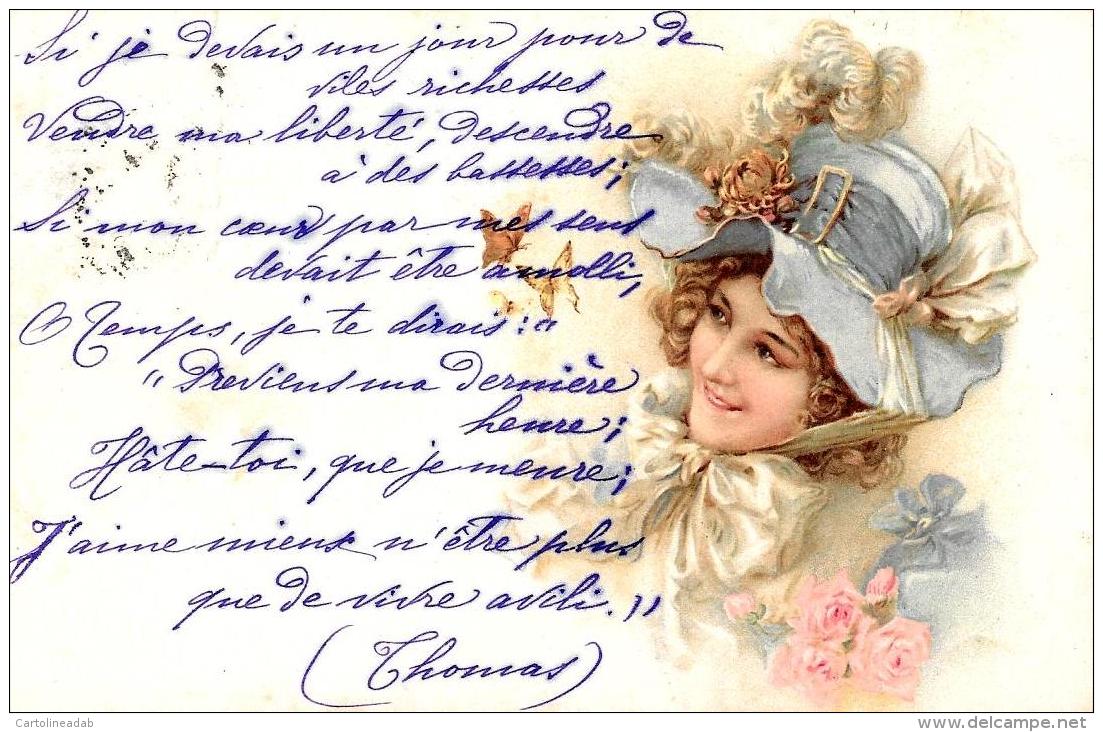 Si je devais un jour pour de
viles richesses
Vendre ma liberté, descendre
à des bassesses;
Si mon cœur par mes sens
devait être amolli,
O Temps, je te dirais: "
"Préviens ma dernière
heure;
Hâte-toi, que je meure;
J'aime mieux n'être plus
que de vivre avili."
(Thomas)
Cartolineadab
www.delcampe.net